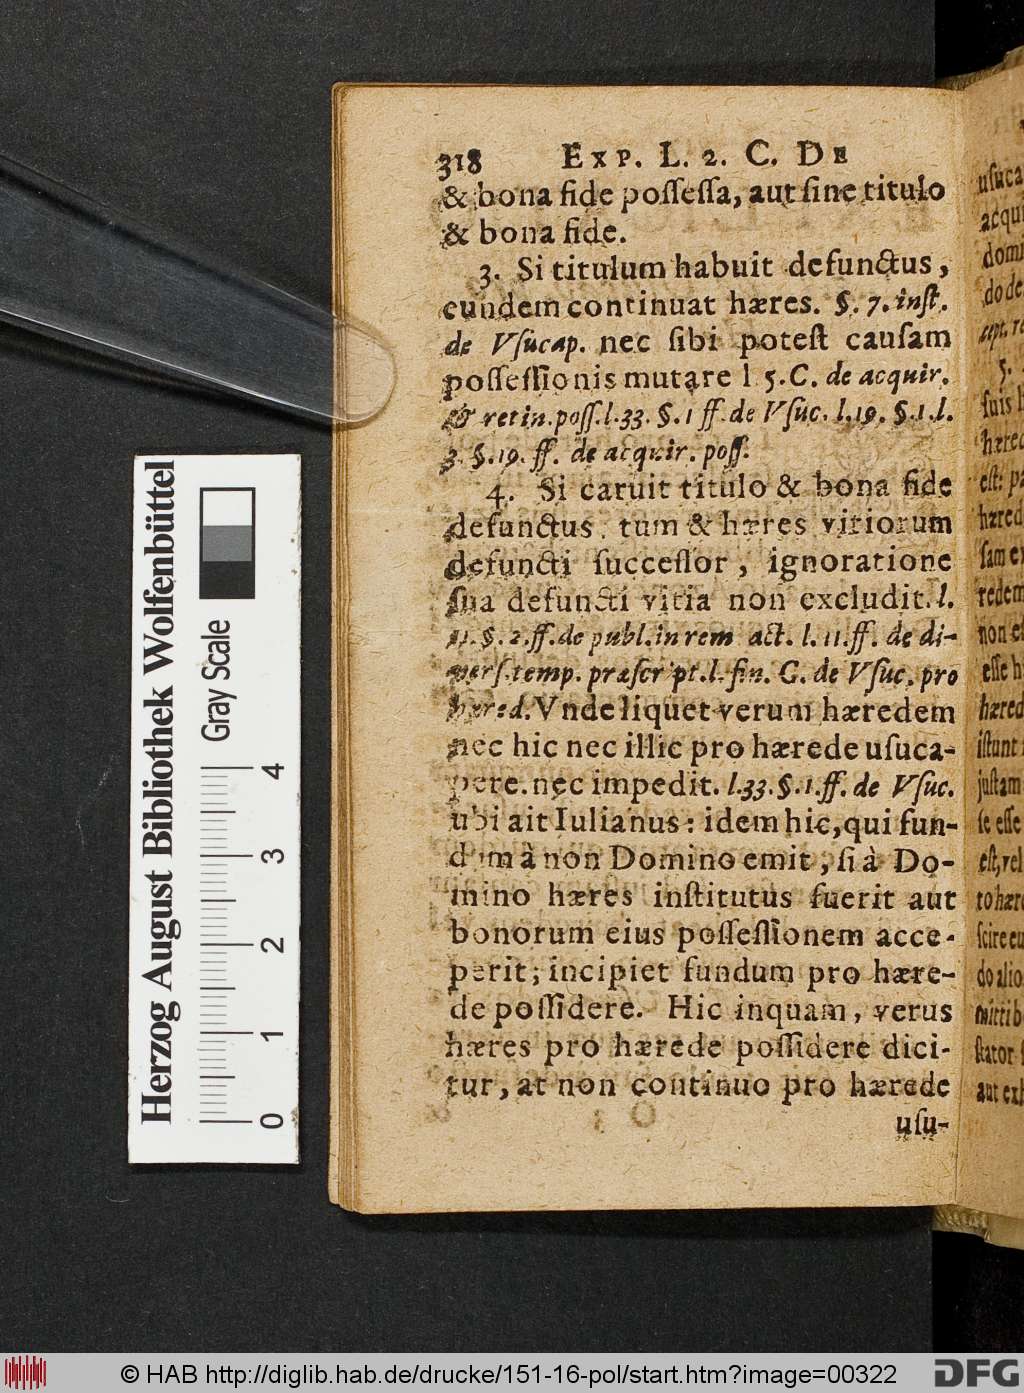 318 EXP. L. 2. C. DE
& bona fide poſſeſſa, aut ſine titulo
& bona fide.
3. Si titulum habuit defunctus,
eundem continuat hæres. §. 7. inſt.
de Vſucap. nec ſibi poteſt cauſam
poſſeſſionis mutare l 5. C. de acquir.
& retin. poſſ. l. 33. §. 1 ff. de Vſuc. l. 19. §. 1. l.
3. §. 19. ff. de acquir. poſſ.
4. Si caruit titulo & bona fide
defunctus, tum & hæres vitiorum
defuncti ſucceſſor, ignoratione
ſua defuncti vitia non excludit. l.
11. §. 2. ff. de publ. in rem act. l. 11. ff. de di-
verſ. temp. præſcript. l. fin. C. de Vſuc. pro
hæred. Vnde liquet verum hæredem
nec hic nec illic pro hærede uſuca-
pere. nec impedit. l. 33. §. 1. ff. de Vſuc.
ubi ait Iulianus: idem hic, qui fun-
dum â non Domino emit, ſi à Do-
mino hæres inſtitutus fuerit aut
bonorum eius poſſeſſionem acce-
perit; incipiet fundum pro hære-
de poſſidere. Hic inquam, verus
hæres pro hærede poſſidere dici-
tur, at non continuo pro hærede
uſu-
Herzog August Bibliothek Wolfenbüttel
Gray Scale
0 1 2 3 4
© HAB http://diglib.hab.de/drucke/151-16-pol/start.htm?image=00322
DFG